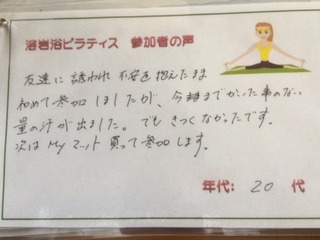 溶岩浴ピラティス 参加者の声
友達に誘われ 不安を抱えたまま
初めて参加しましたが、今迄かいた事のない
量の汗が出ました。でも きつくなかったです。
次は My マット 買って参加します。
年代: 20 代